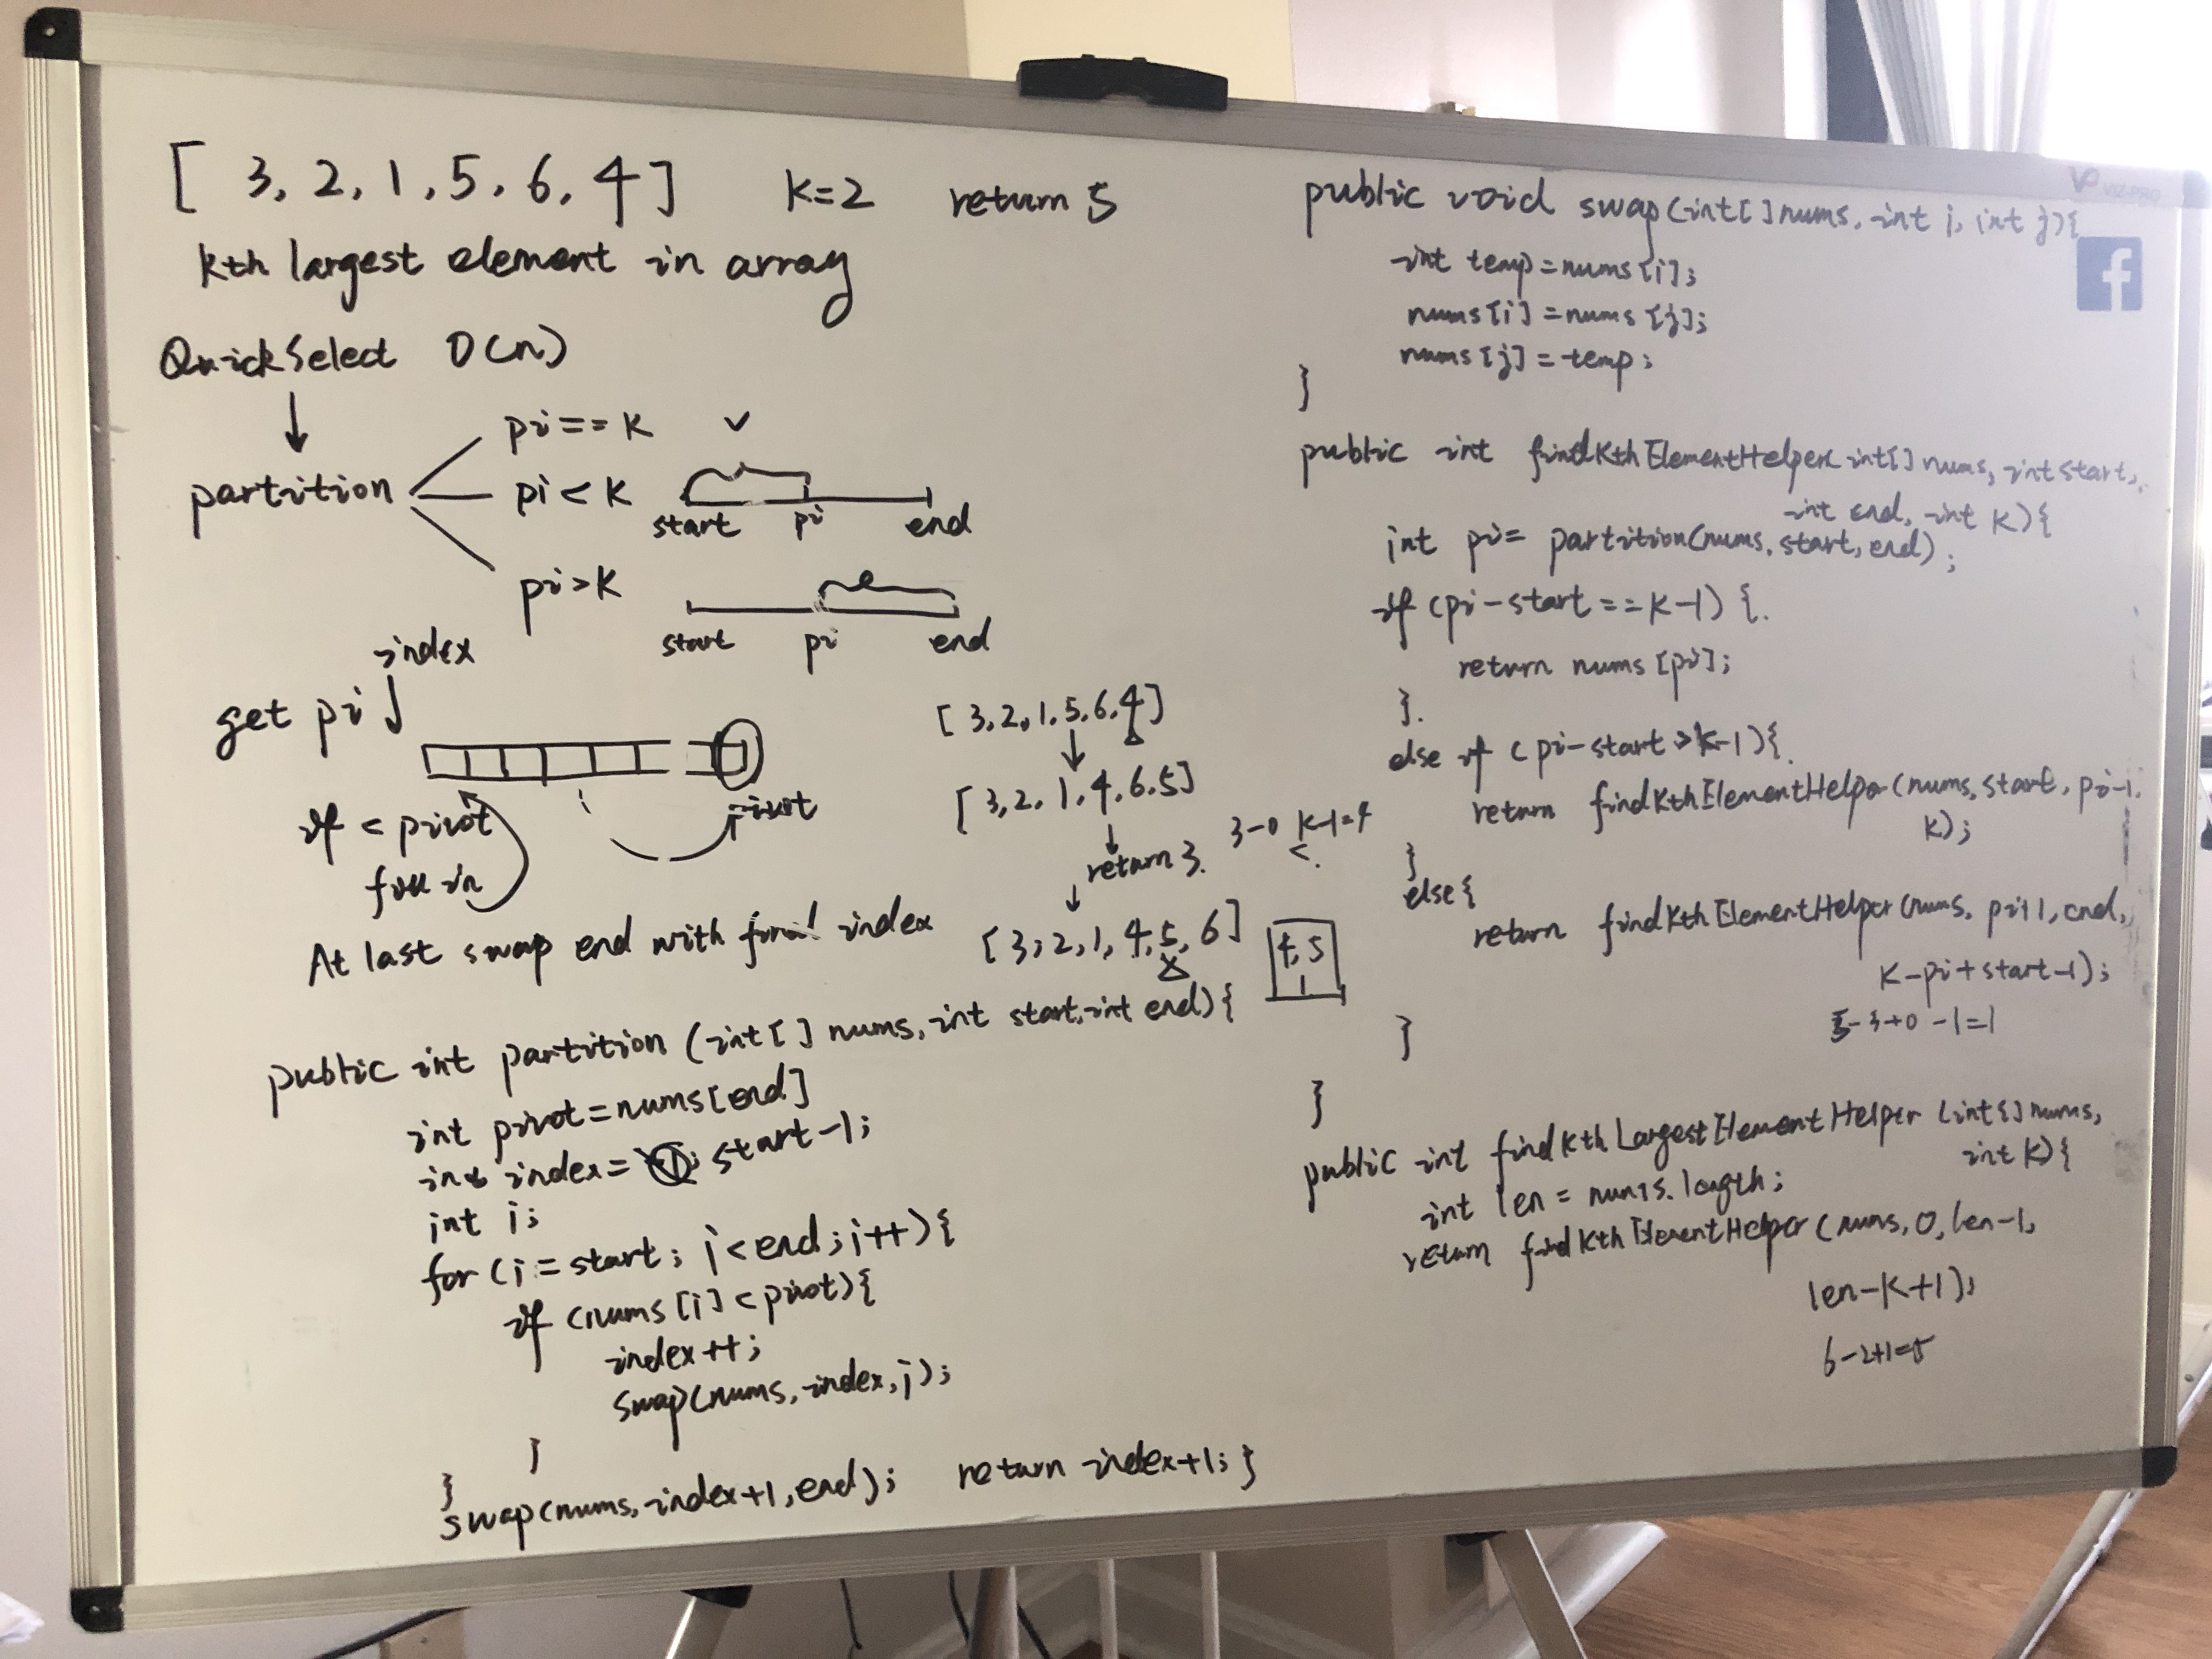 [ 3, 2, 1, 5, 6, 4 ] K=2 return 5
kth largest element in array
QuickSelect O(n)
partition
pi == K ✓
pi < K
start pi end
pi > K
start pi end
index
get pi
pivot
if < pivot
fill in
At last swap end with final index
[ 3, 2, 1, 5, 6, 4 ]
[ 3, 2, 1, 4, 6, 5 ]
return 3. 3-0 K-1=4
<.
[ 3, 2, 1, 4, 5, 6 ] 4, 5
1
public int partition (int[] nums, int start, int end) {
int pivot = nums[end]
int index = start-1;
int i;
for (i = start; i < end; i++) {
if (nums[i] < pivot) {
index++;
swap(nums, index, i);
}
}
swap(nums, index+1, end); return index+1; }
VIZ-PRO
public void swap(int[] nums, int i, int j) {
int temp = nums[i];
nums[i] = nums[j];
nums[j] = temp;
}
public int findKthElementHelper(int[] nums, int start,
int end, int K) {
int pi = partition(nums, start, end);
if (pi-start == K-1) {
return nums[pi];
}
else if (pi-start > K-1) {
return findKthElementHelper(nums, start, pi-1,
K);
}
else {
return findKthElementHelper(nums, pi+1, end,
K-pi+start-1);
5-3+0-1=1
}
}
public int findKthLargestElementHelper (int[] nums,
int K) {
int len = nums.length;
return findKthElementHelper(nums, 0, len-1,
len-K+1);
6-2+1=5